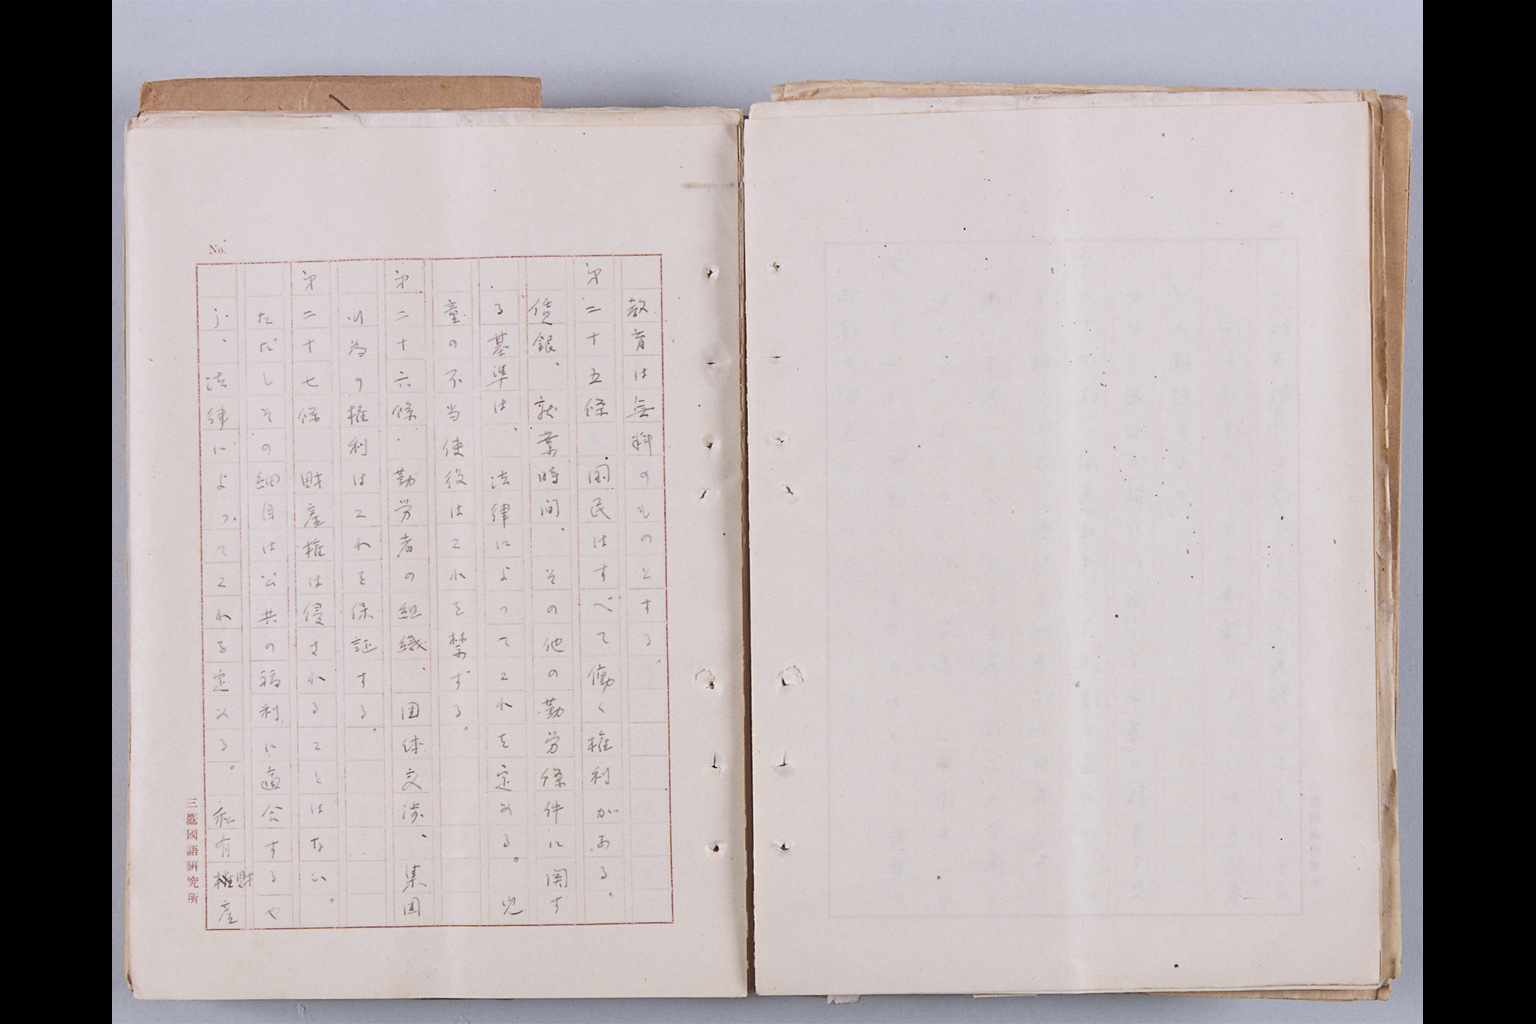 No.
教育は無料のものとする。
第二十五條　国民はすべて働く権利がある。
賃銀、就業時间、その他の勤労條件に関す
る基準は、法律によってこれを定める。児
童の不当使役はこれを禁ずる。
第二十六條　勤労者の組織、団体交渉、集団
行為の権利はこれを保証する。
第二十七條　財産権は侵されることはない。
ただしその細目は公共の福利に適合するや
う、法律によってこれを定める。私有財産
三鷹國語研究所